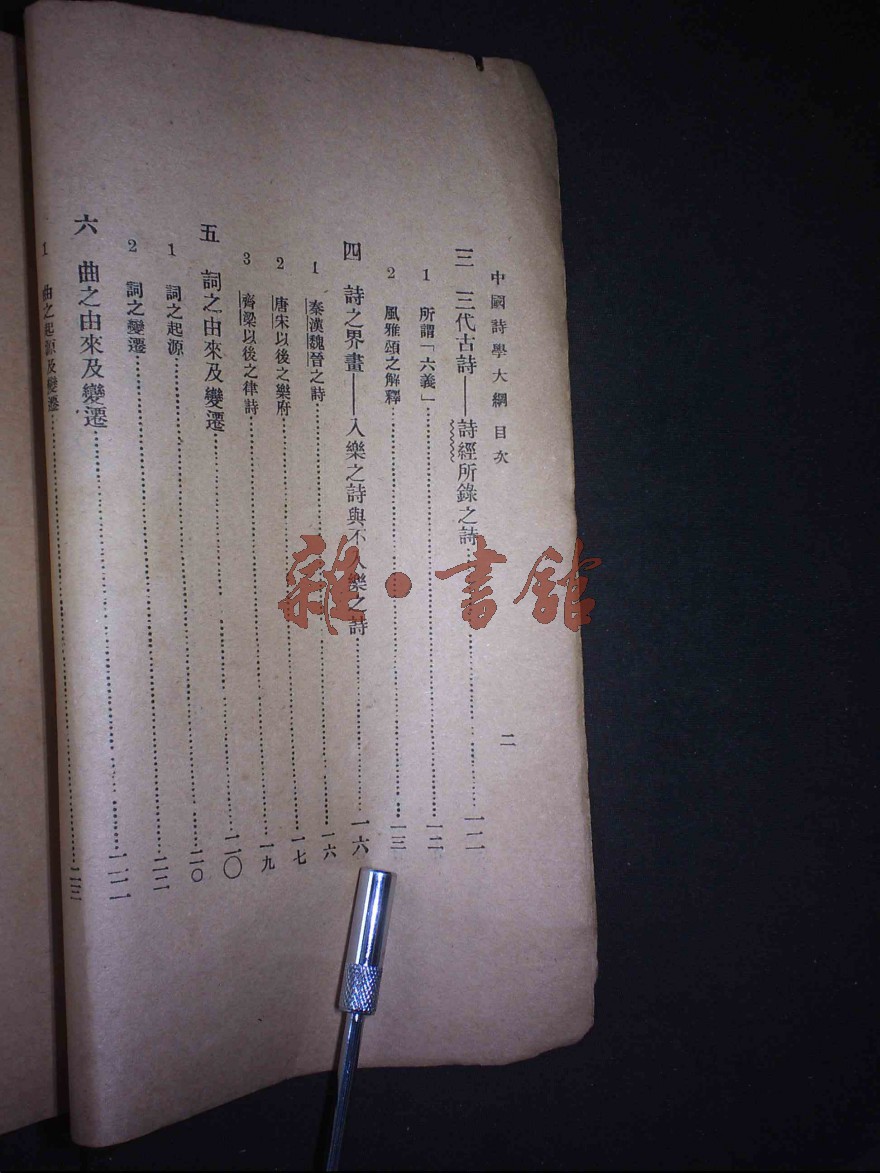 中國詩學大綱 目次 二
三 三代古詩——詩經所錄之詩…………一二
1 所謂「六義」…………一二
2 風雅頌之解釋…………一三
四 詩之界畫——入樂之詩與不入樂之詩…………一六
1 秦漢魏晉之詩…………一六
2 唐宋以後之樂府…………一七
3 齊梁以後之律詩…………一九
五 詞之由來及變遷…………二〇
1 詞之起源…………二〇
2 詞之變遷…………二二
六 曲之由來及變遷…………
1 曲之起源及變遷…………二三
雜·書館